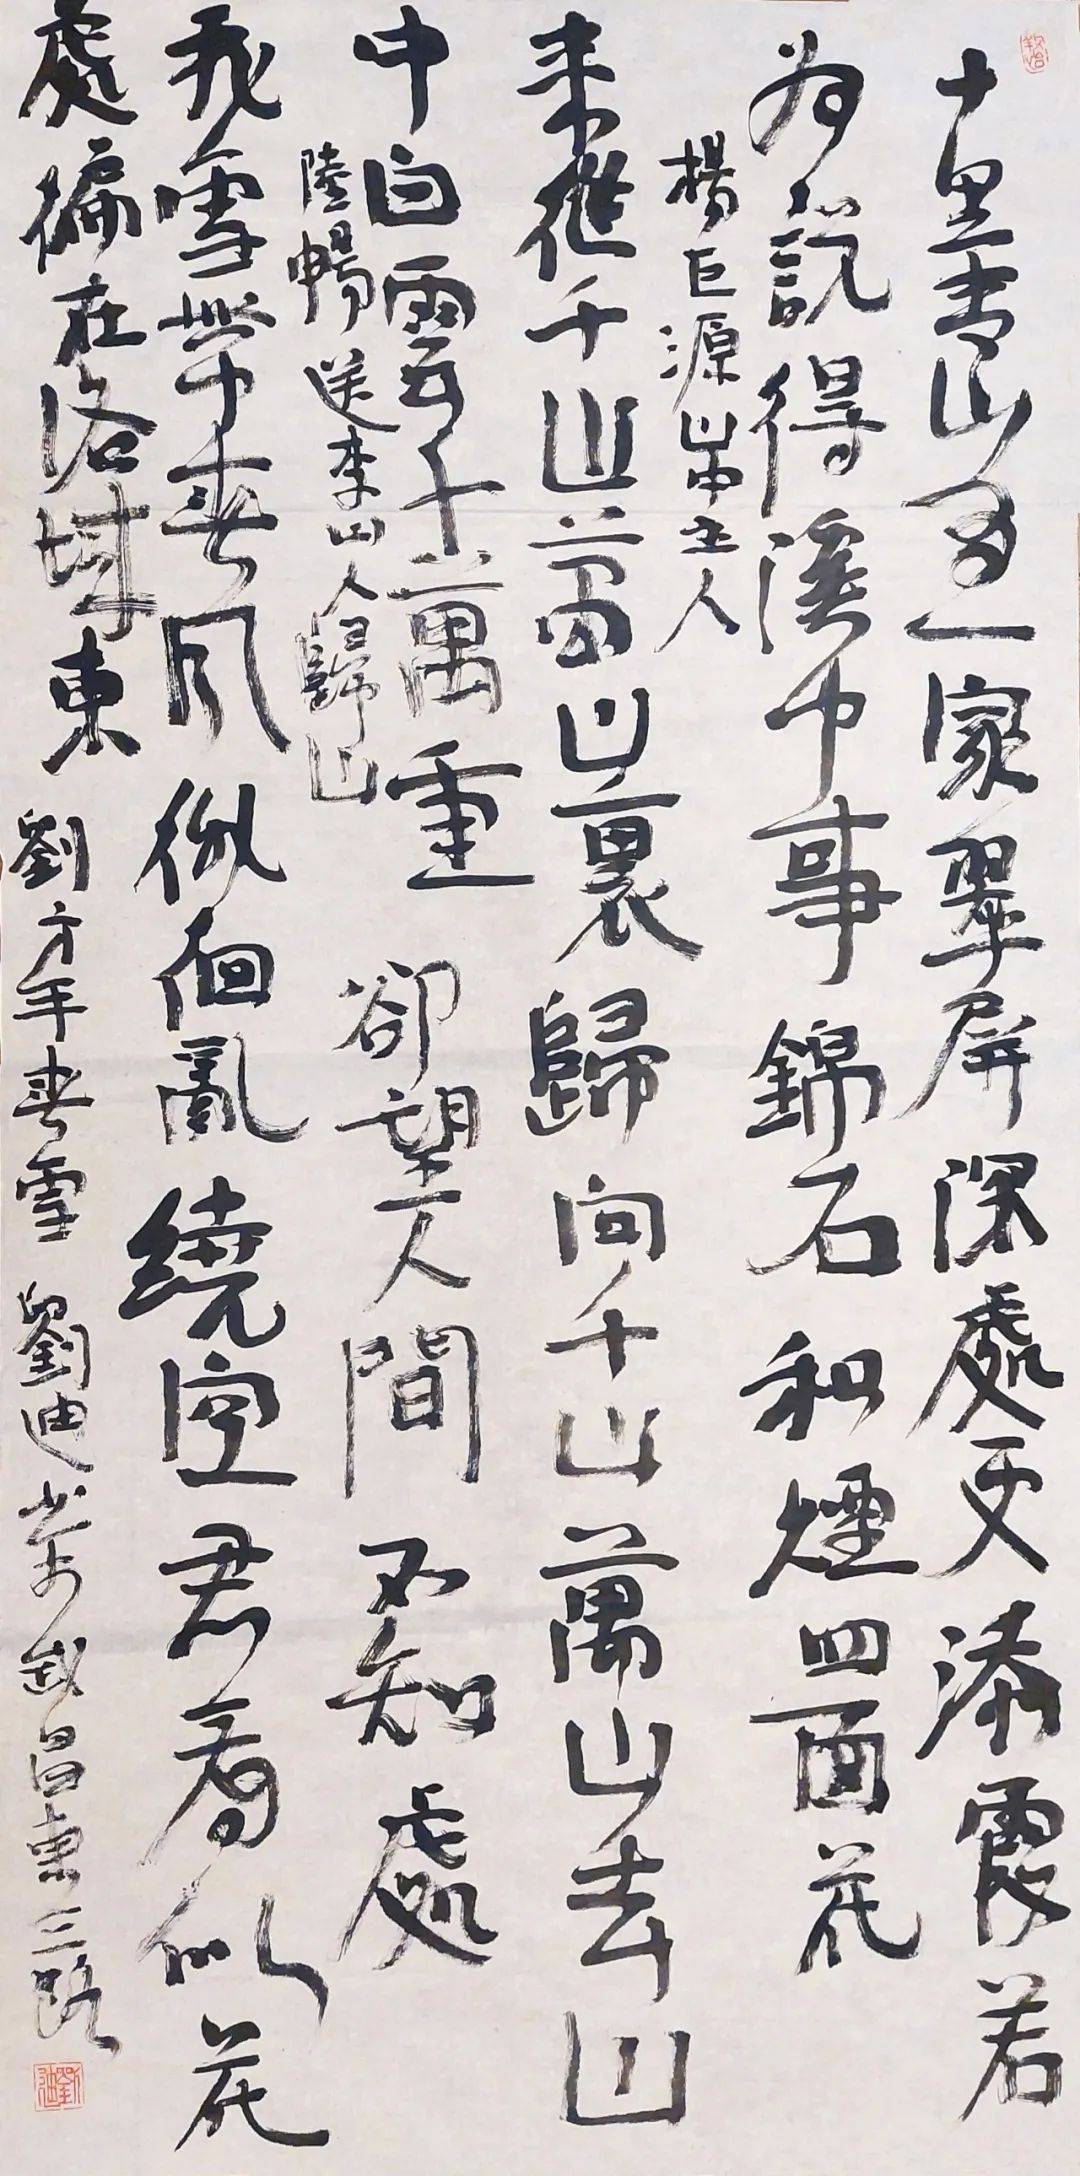 十里青山有一家翠屏深處更添霞若
為說得溪中事錦石和煙四面花
楊巨源山中主人
來從千山萬山裏歸向千山萬山去山
中白雲千萬重卻望人間不知處
陸暢送李山人歸山
飛雪帶春風徘徊亂繞空君看似花
處偏在洛城東 劉方平春雪 劉迪書於武昌東三路
劉迪